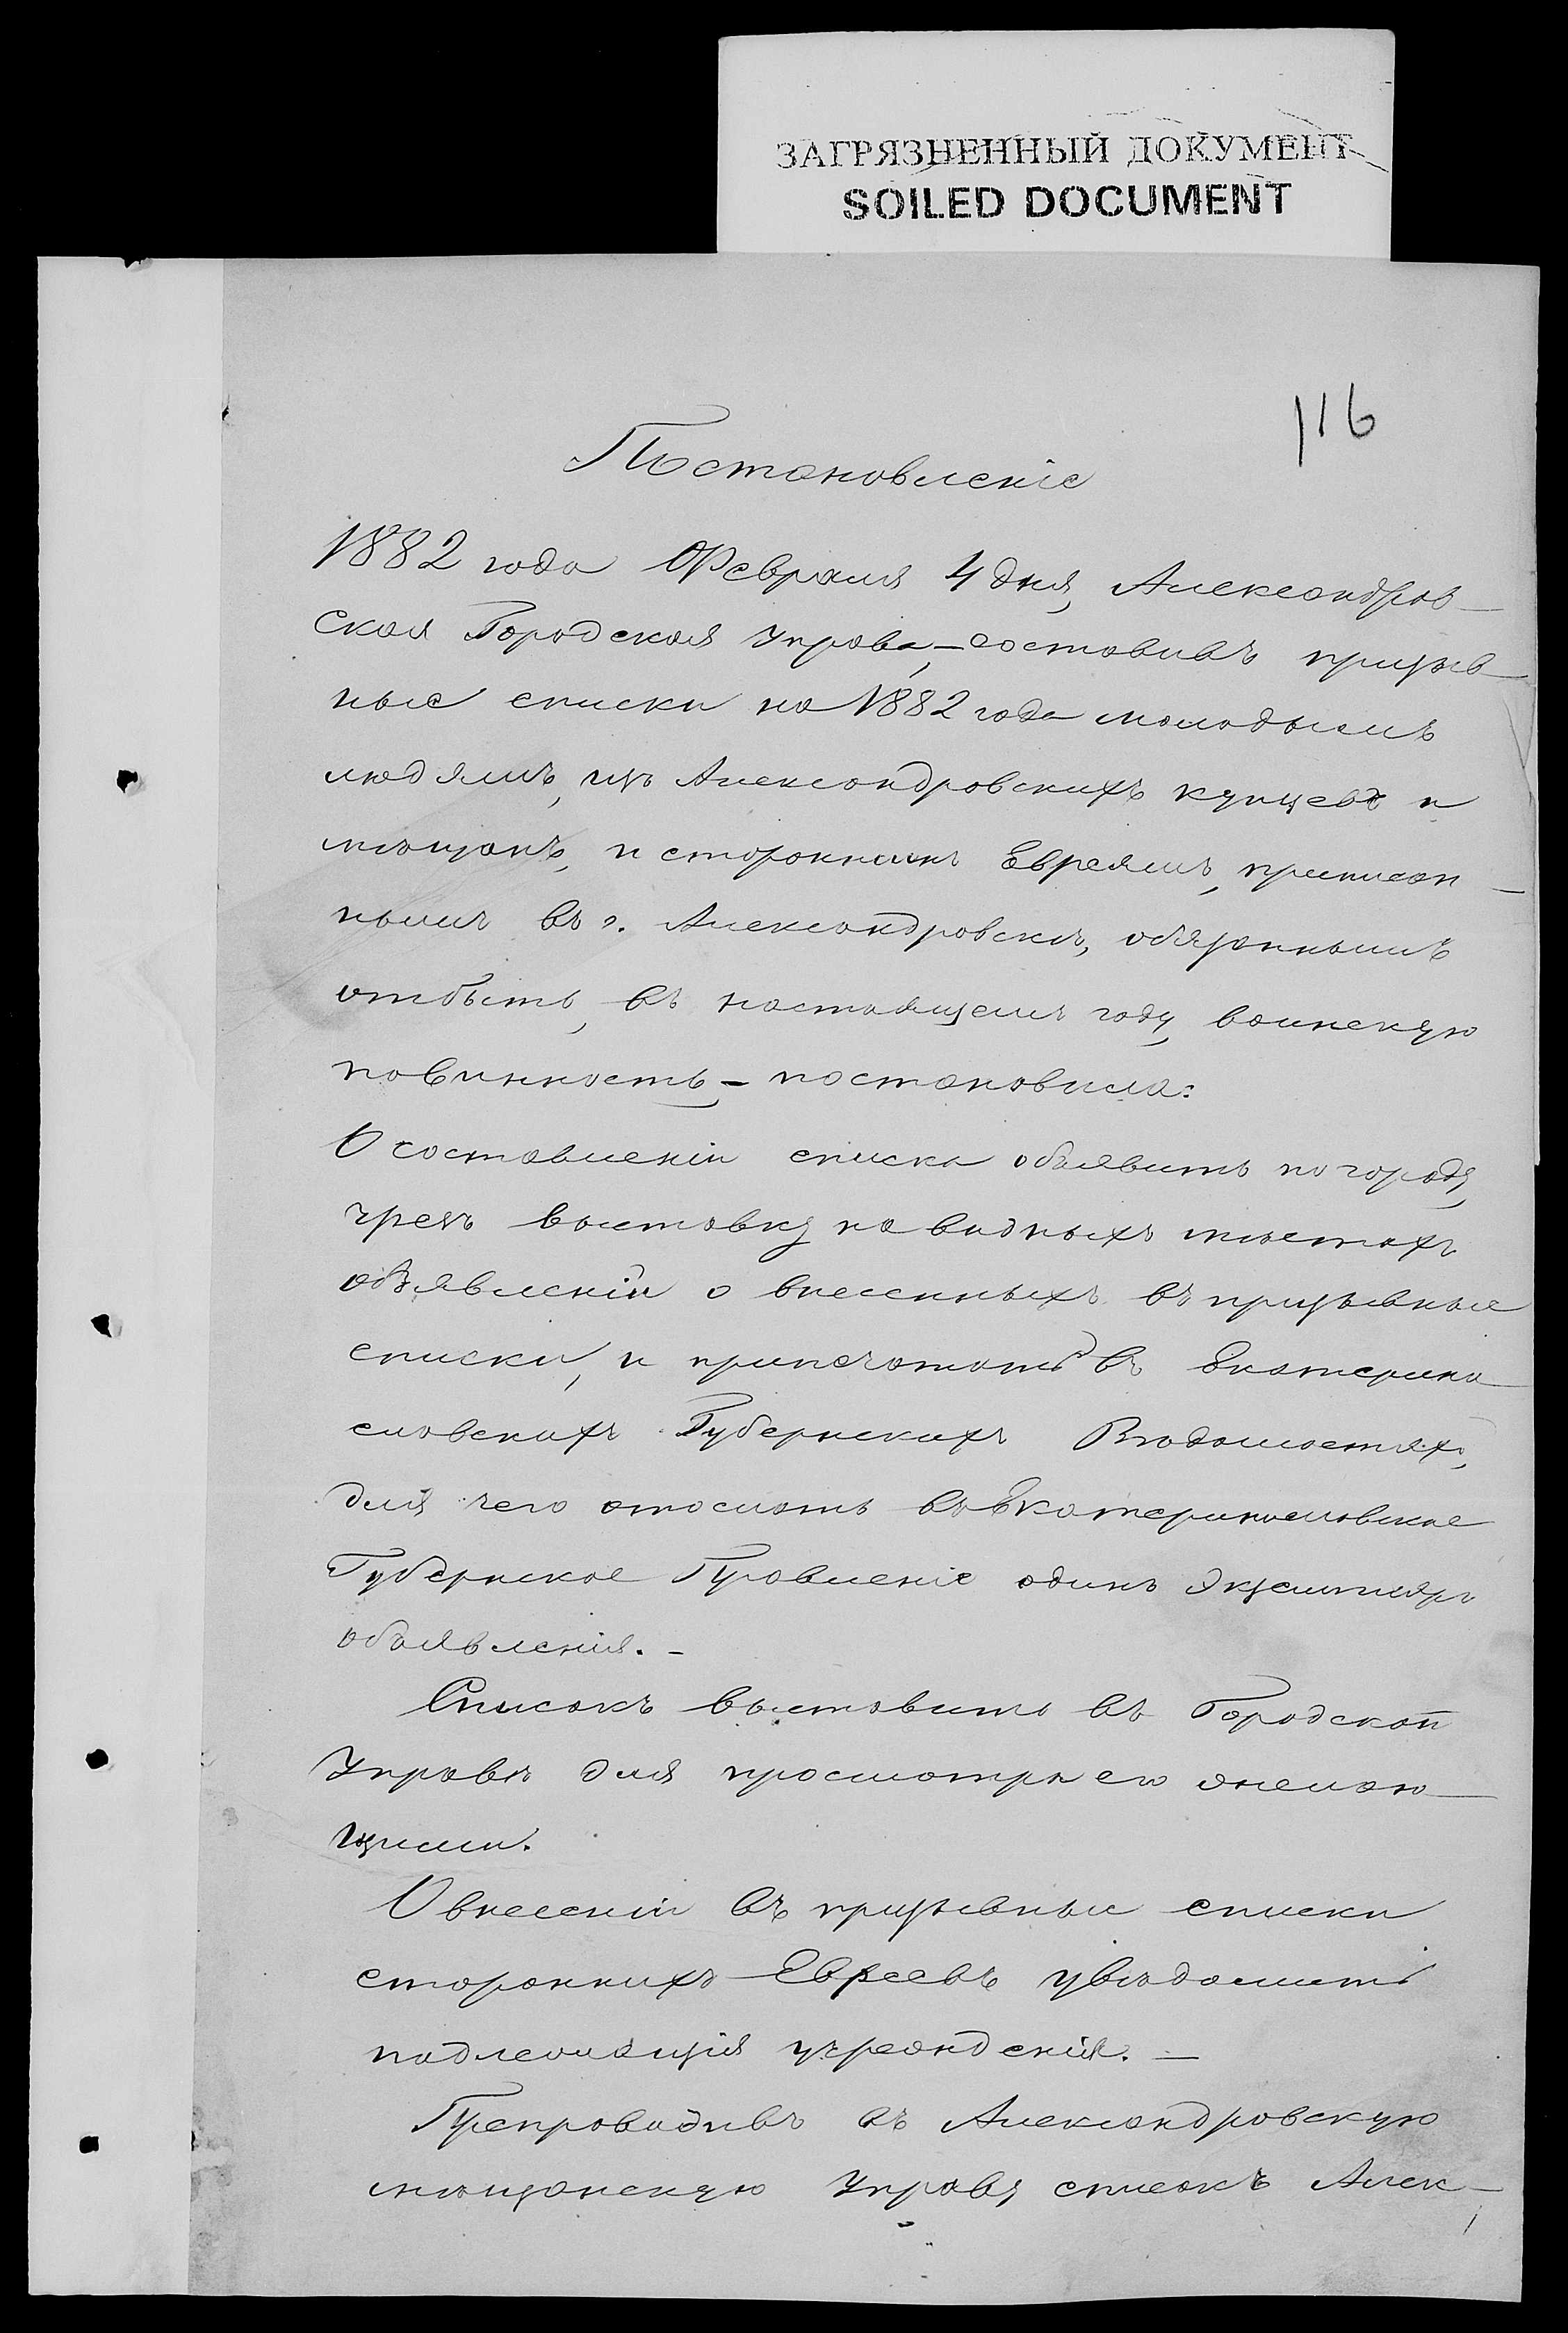 ЗАГРЯЗНЕННЫЙ ДОКУМЕНТ
SOILED DOCUMENT
116
Постановленіе
1882 года Февраля 4 дня, Александров-
ская Городская Управа,- составивъ призыв-
ные списки на 1882 года молодымъ
людямъ, изъ Александровскихъ купцовъ и
мѣщанъ, и стороннимъ Евреямъ, приписан-
нымъ въ г. Александровскѣ, обязаннымъ
отбыть, въ настоящемъ году, воинскую
повинность,- постановила:
О составленіи списка объявить по городу,
чрезъ выставку на видныхъ мѣстахъ
объявленій о внесенныхъ въ призывные
списки, и припечатать въ Екатерино-
славскихъ Губернскихъ Вѣдомостяхъ,
для чего отослать въ Екатеринославское
Губернское Правленіе одинъ экземпляръ
объявленія.-
Списокъ выставить въ Городской
Управѣ для просмотра его желаю-
щими.
О внесеніи въ призывные списки
стороннихъ Евреевъ увѣдомить
подлежащія учрежденія.-
Препроводивъ въ Александровскую
мѣщанскую Управу списокъ Алек-